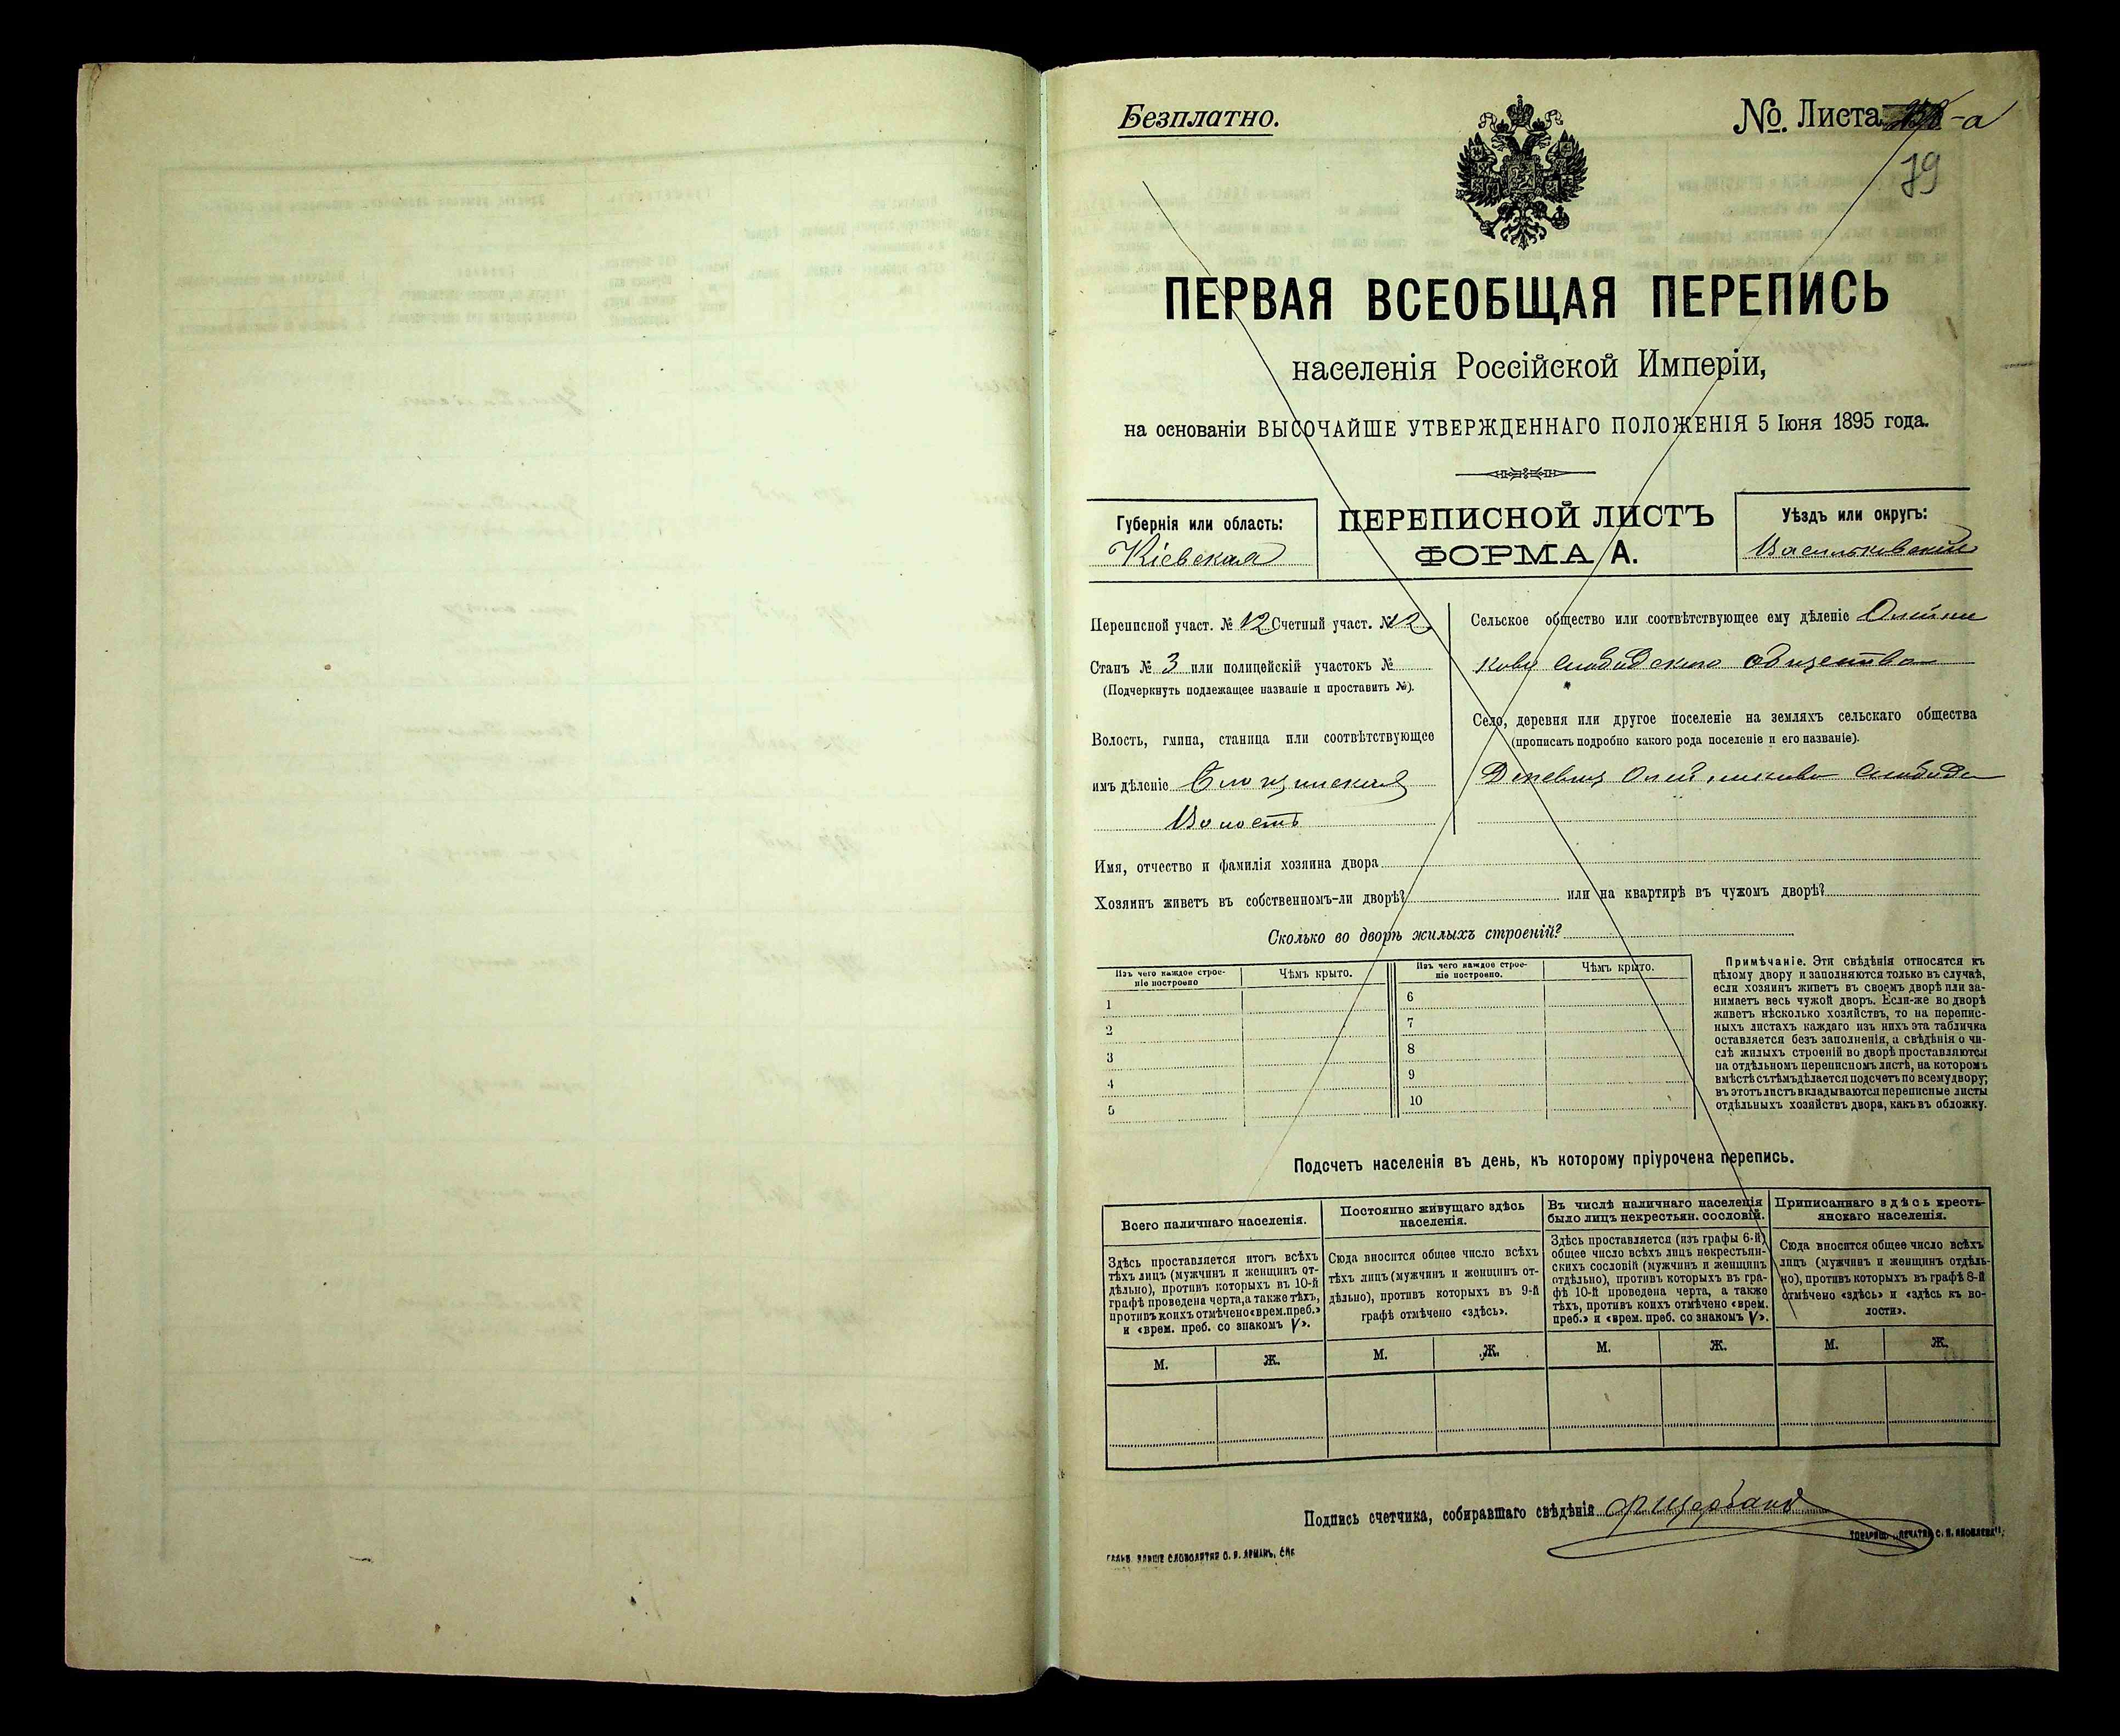 Безплатно.
№ Листа -а
79
ПЕРВАЯ ВСЕОБЩАЯ ПЕРЕПИСЬ
населенія Россійской Имперіи,
на основаніи ВЫСОЧАЙШЕ УТВЕРЖДЕННАГО ПОЛОЖЕНІЯ 5 Іюня 1895 года.
Губернія или область:
Кіевская
ПЕРЕПИСНОЙ ЛИСТЪ
ФОРМА А.
Уѣздъ или округъ:
Васильковскій
Переписной участ. № 12 Счетный участ. № 12
Станъ № 3 или полицейскій участокъ №
(Подчеркнуть подлежащее названіе и проставить №).
Волость, гмина, станица или соотвѣтствующее
имъ дѣленіе
Волость
Сельское общество или соотвѣтствующее ему дѣленіе Олійни
кова слободскаго общества
Село, деревня или другое поселеніе на земляхъ сельскаго общества
(прописать подробно какого рода поселеніе и его названіе).
Деревня Олійникова Слобода
Имя, отчество и фамилія хозяина двора
Хозяинъ живетъ въ собственномъ-ли дворѣ? или на квартирѣ въ чужомъ дворѣ?
Сколько во дворѣ жилыхъ строеній?
Изъ чего каждое строе-
ніе построено
Чѣмъ крыто.
Изъ чего каждое строе-
ніе построено.
Чѣмъ крыто.
1
2
3
4
5
6
7
8
9
10
Примѣчаніе. Эти свѣдѣнія относятся къ
цѣлому двору и заполняются только въ случаѣ,
если хозяинъ живетъ въ своемъ дворѣ или за-
нимаетъ весь чужой дворъ. Если-же во дворѣ
живетъ нѣсколько хозяйствъ, то на перепис-
ныхъ листахъ каждаго изъ нихъ эта табличка
оставляется безъ заполненія, а свѣдѣнія о чи-
слѣ жилыхъ строеній во дворѣ проставляются
на отдѣльномъ переписномъ листѣ, на которомъ
вмѣстѣ съ тѣмъ дѣлается подсчетъ по всему двору;
въ этотъ листъ вкладываются переписные листы
отдѣльныхъ хозяйствъ двора, какъ въ обложку.
Подсчетъ населенія въ день, къ которому пріурочена перепись.
Всего наличнаго населенія.
Здѣсь проставляется итогъ всѣхъ
тѣхъ лицъ (мужчинъ и женщинъ от-
дѣльно), противъ которыхъ въ 10-й
графѣ проведена черта, а также тѣхъ,
противъ коихъ отмѣчено «врем. преб.»
и «врем. преб. со знакомъ V».
М. Ж.
Постоянно живущаго здѣсь
населенія.
Сюда вносится общее число всѣхъ
тѣхъ лицъ (мужчинъ и женщинъ от-
дѣльно), противъ которыхъ въ 9-й
графѣ отмѣчено «здѣсь».
М. Ж.
Въ числѣ наличнаго населенія
было лицъ некрестьян. сословій.
Здѣсь проставляется (изъ графы 6-й)
общее число всѣхъ лицъ некрестьян-
скихъ сословій (мужчинъ и женщинъ
отдѣльно), противъ которыхъ въ гра-
фѣ 10-й проведена черта, а также
тѣхъ, противъ коихъ отмѣчено «врем.
преб.» и «врем. преб. со знакомъ V».
М. Ж.
Приписаннаго здѣсь кресть-
янскаго населенія.
Сюда вносится общее число всѣхъ
лицъ (мужчинъ и женщинъ отдѣль-
но), противъ которыхъ въ графѣ 8-й
отмѣчено «здѣсь» и «здѣсь къ во-
лости».
М. Ж.
Подпись счетчика, собиравшаго свѣдѣнія Щербаков
ТОВАРИЩ. „ПЕЧАТНИ С. П. ЯКОВЛЕВА“.